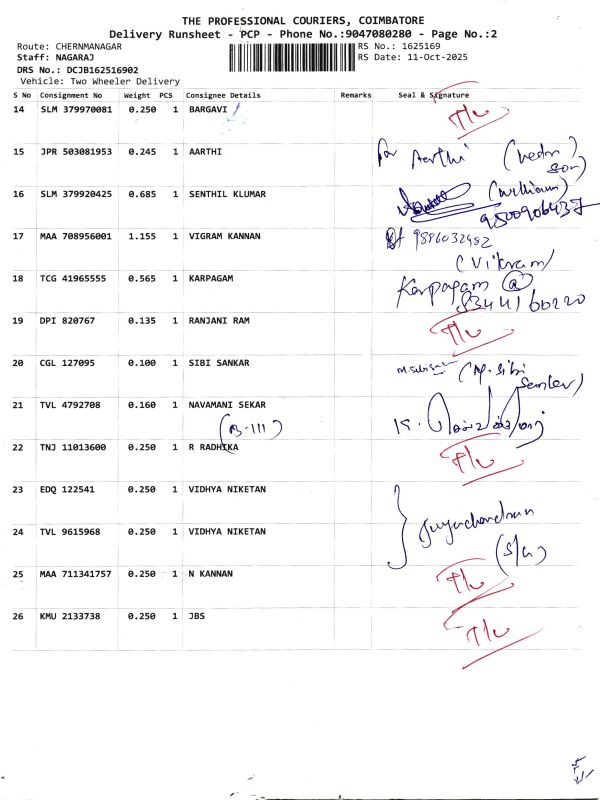 THE PROFESSIONAL COURIERS, COIMBATORE
Delivery Runsheet - PCP - Phone No.:9047080280 - Page No.:2
Route: CHERNMANAGAR
RS No.: 1625169
Staff: NAGARAJ
RS Date: 11-Oct-2025
DRS No.: DCJB162516902
Vehicle: Two Wheeler Delivery
S No Consignment No Weight PCS Consignee Details Remarks Seal & Signature
14 SLM 379970081 0.250 1 BARGAVI
15 JPR 503081953 0.245 1 AARTHI for Aarthi
16 SLM 379920425 0.685 1 SENTHIL KLUMAR (william)
9500906437
17 MAA 708956001 1.155 1 VIGRAM KANNAN 9886032482
(Vikram)
18 TCG 41965555 0.565 1 KARPAGAM Karpagam @
8344166220
19 DPI 820767 0.135 1 RANJANI RAM
20 CGL 127095 0.100 1 SIBI SANKAR (M. Sibi
21 TVL 4792708 0.160 1 NAVAMANI SEKAR
(B-111)
22 TNJ 11013600 0.250 1 R RADHIKA
23 EDQ 122541 0.250 1 VIDHYA NIKETAN
24 TVL 9615968 0.250 1 VIDHYA NIKETAN
25 MAA 711341757 0.250 1 N KANNAN
26 KMU 2133738 0.250 1 JBS